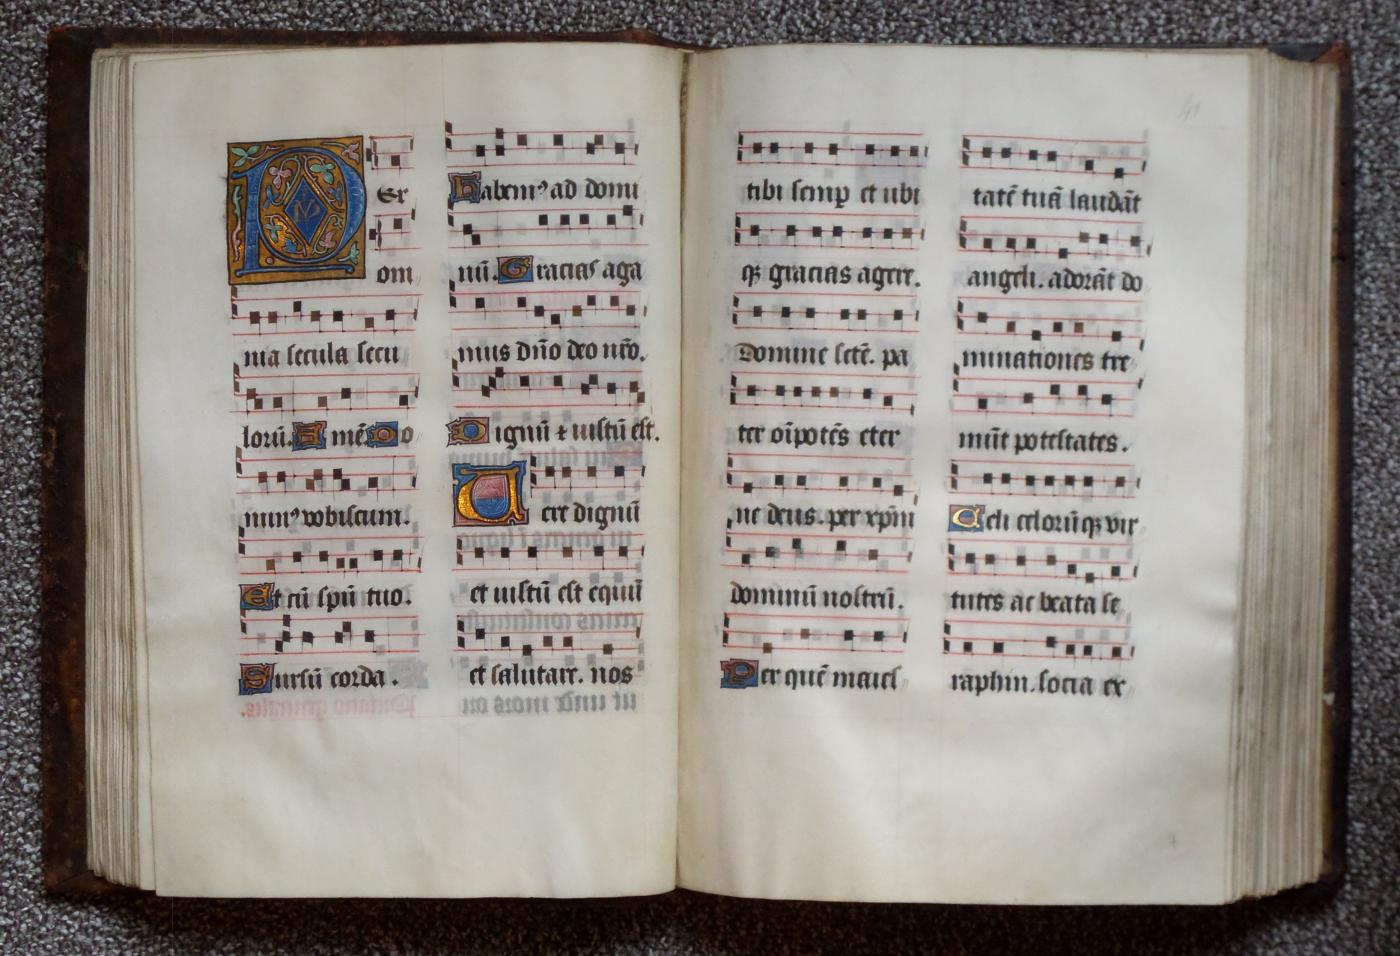 Per
om
nia secula secu
lorū. A mē. Do
minꝰ vobiscum.
Et cū spū tuo.
Sursū corda.
Habemꝰ ad domi
nū. Gracias aga
mus dn̄o deo nr̄o.
Dignū ⁊ iustū est.
Vere dignū
et iustū est equū
et salutare. nos
tibi semꝑ et ubi
qꝫ gracias agere.
Domine sctē. pa
ter oīpotēs eter
ne deus. per xp̄m
dominū nostrū.
Per quē maies
41
tatē tuā laudāt
angeli. adorāt do
minationes tre
mūt potestates.
Celi celorūqꝫ vir
tutes ac beata se
raphin. socia ex